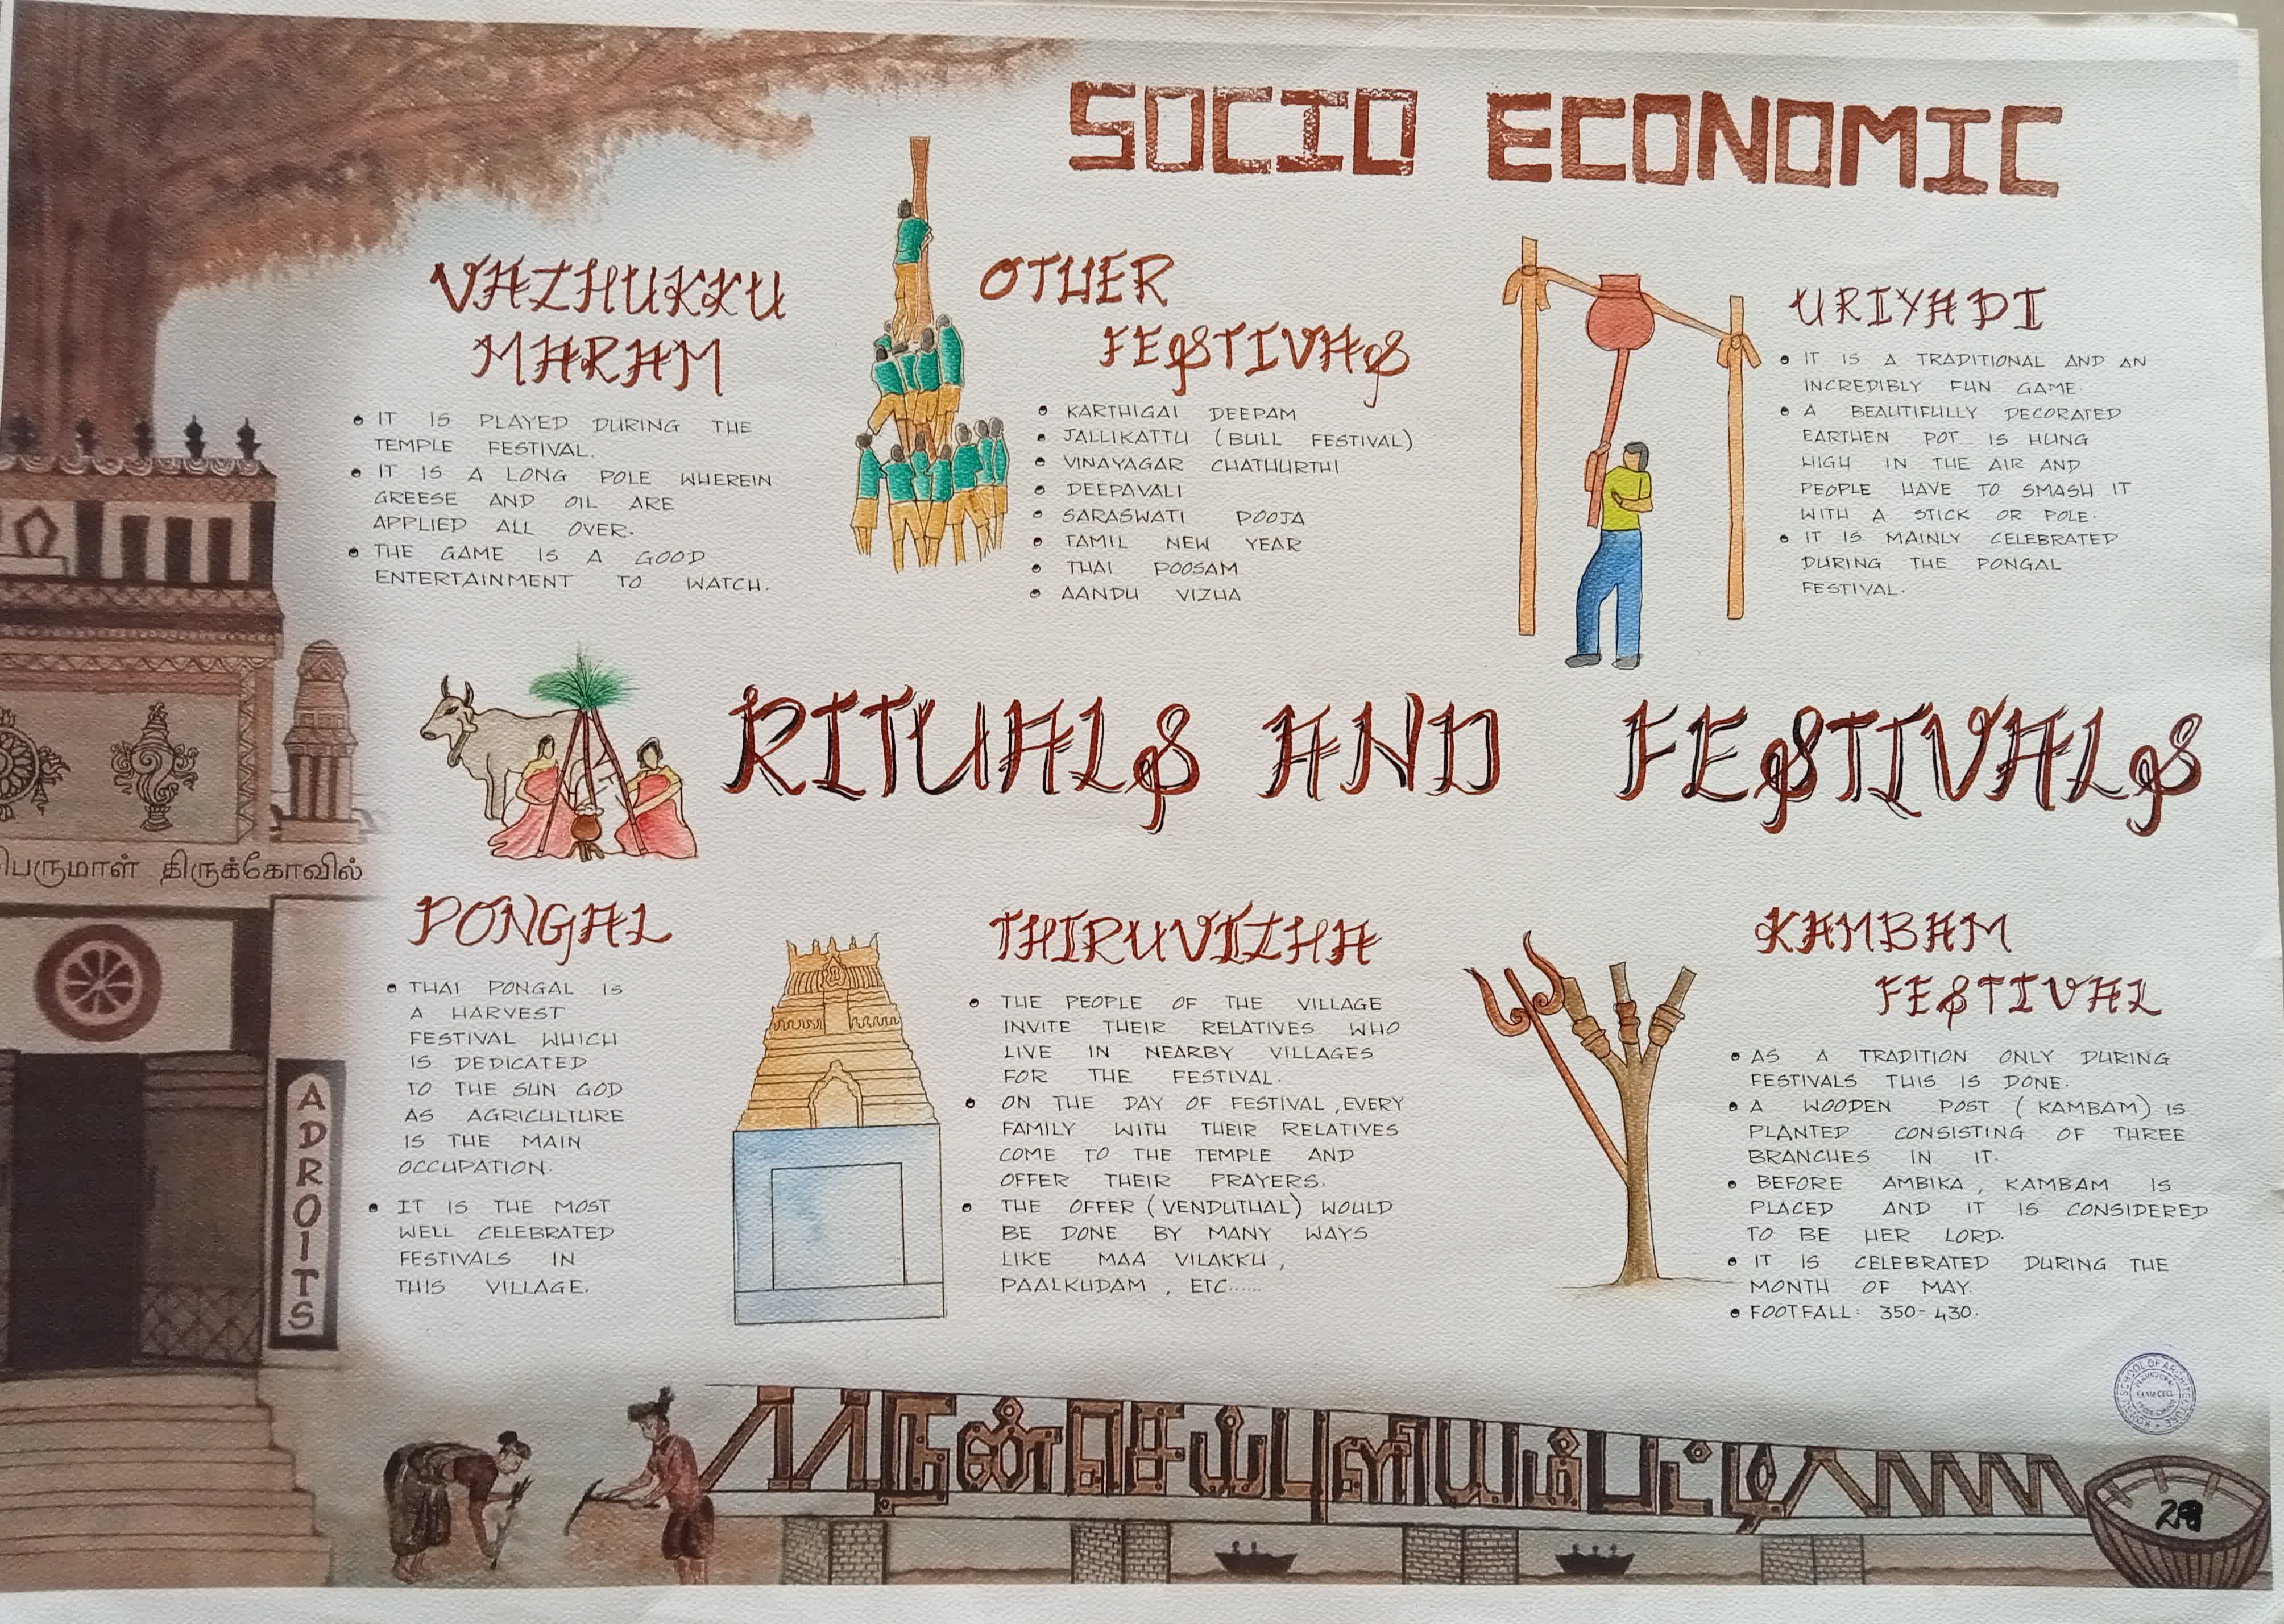 SOCIO ECONOMIC
VAZHUKKU
MARAM
• IT IS PLAYED DURING THE
TEMPLE FESTIVAL.
• IT IS A LONG POLE WHEREIN
GREESE AND OIL ARE
APPLIED ALL OVER.
• THE GAME IS A GOOD
ENTERTAINMENT TO WATCH.
OTHER
FESTIVAS
• KARTHIGAI DEEPAM
• JALLIKATTU (BULL FESTIVAL)
• VINAYAGAR CHATHURTHI
• DEEPAVALI
• SARASWATI POOJA
• TAMIL NEW YEAR
• THAI POOSAM
• AANDU VIZHA
URIYADI
• IT IS A TRADITIONAL AND AN
INCREDIBLY FUN GAME.
• A BEAUTIFULLY DECORATED
EARTHEN POT IS HUNG
HIGH IN THE AIR AND
PEOPLE HAVE TO SMASH IT
WITH A STICK OR POLE.
• IT IS MAINLY CELEBRATED
DURING THE PONGAL
FESTIVAL.
RITUALS AND FESTIVALS
பெருமாள் திருக்கோவில்
PONGAL
• THAI PONGAL IS
A HARVEST
FESTIVAL WHICH
IS DEDICATED
TO THE SUN GOD
AS AGRICULTURE
IS THE MAIN
OCCUPATION.
• IT IS THE MOST
WELL CELEBRATED
FESTIVALS IN
THIS VILLAGE.
THIRUVIZHA
• THE PEOPLE OF THE VILLAGE
INVITE THEIR RELATIVES WHO
LIVE IN NEARBY VILLAGES
FOR THE FESTIVAL.
• ON THE DAY OF FESTIVAL ,EVERY
FAMILY WITH THEIR RELATIVES
COME TO THE TEMPLE AND
OFFER THEIR PRAYERS.
• THE OFFER (VENDUTHAL) WOULD
BE DONE BY MANY WAYS
LIKE MAA VILAKKU ,
PAALKUDAM , ETC......
KAMBAM
FESTIVAL
• AS A TRADITION ONLY DURING
FESTIVALS THIS IS DONE.
• A WOODEN POST ( KAMBAM) IS
PLANTED CONSISTING OF THREE
BRANCHES IN IT.
• BEFORE AMBIKA , KAMBAM IS
PLACED AND IT IS CONSIDERED
TO BE HER LORD.
• IT IS CELEBRATED DURING THE
MONTH OF MAY.
• FOOTFALL: 350-430.
ADROITS
SCHOOL OF ARCHITECTURE
EXAM CELL
நன்செய்புளியம்பட்டி